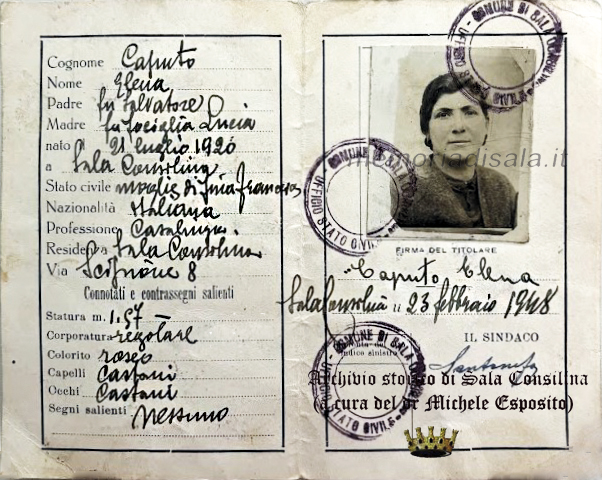 Cognome Caputo
Nome Elena
Padre fu Salvatore
Madre fu Lucia
nato il 21 luglio 1920
a Sala Consilina
Stato civile moglie di Francesco
Nazionalità Italiana
Professione Casalinga
Residenza Sala Consilina
Via Scipione 8
Connotati e contrassegni salienti
Statura m. 1.57
Corporatura regolare
Colorito roseo
Capelli Castani
Occhi Castani
Segni salienti Nessuno
COMUNE DI SALA CONSILINA
memoriadisala.it
COMUNE DI SALA CONSILINA
UFFICIO STATO CIVILE
FIRMA DEL TITOLARE
Caputo Elena
Sala Consilina li 23 febbraio 1948
IL SINDACO
indice sinistro
COMUNE DI SALA CONSILINA
UFFICIO STATO CIVILE
Archivio storico di Sala Consilina
(a cura del dr Michele Esposito)